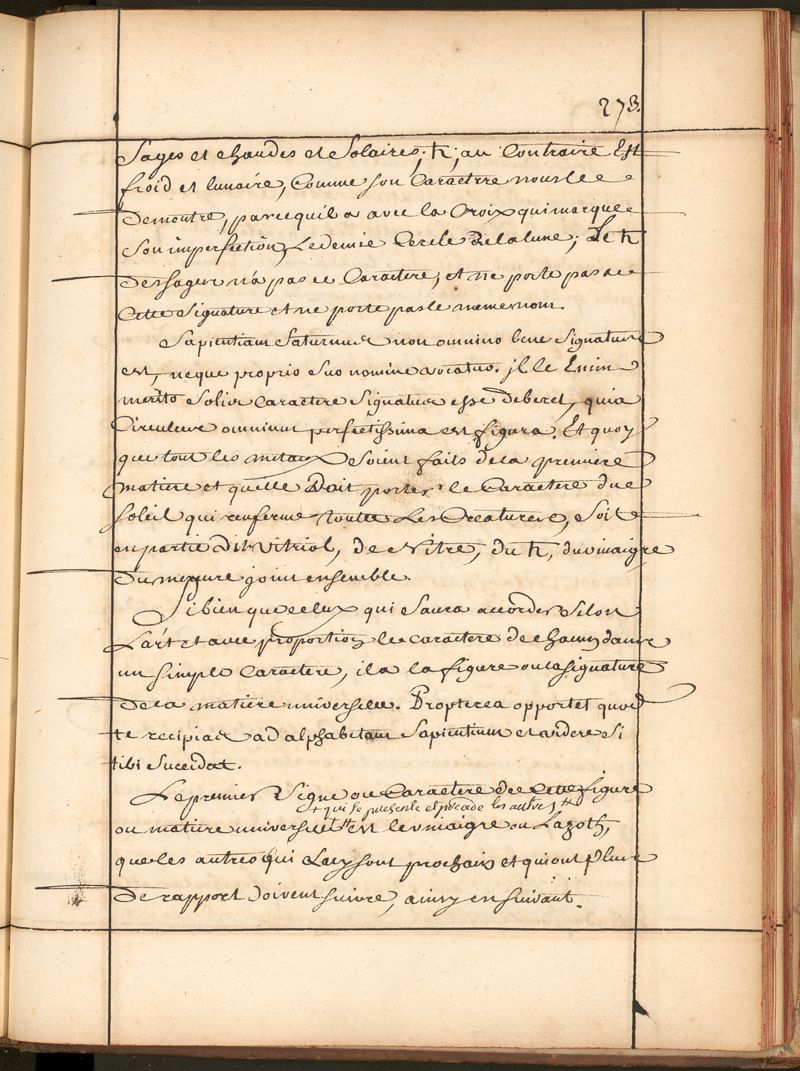 273.
Sages et chaudes et Solaires; ♄; au Contraire Est
froid et lunaire, Comme son Caractere nous le
Demontre, parcequ'il a avec la Croix qui marque
Son imperfection, Le demie Cercle de la lune; Le ♄
des sages n'a pas ce Caractere, et ne porte pas
Cette Signature et ne porte pas le meme nom.
Sapientiam Saturnus non omnino bene Signature
est, neque proprio suo nomine vocatus. jlle Enim
merito Solis Caractere Signature esse deberet, quia
Circuleus omnium perfectissima est figura. Et quoy
que tout les metaux Soient faits de la premiere
matiere et qu'elle Doit porter le Caractere du
Soleil qui renferme toutte Les Creatures, Soit
en partie du Vitriol, de Nitre, du ♄, du vinaigre
Du mercure joint ensemble.
Si bien que celux qui Saura accorder Selon
L'art et avec proportion le caractere de chacun dans
un simple Caractere, il a la figure ou la signature
de la matiere universelle. Propterea opportet quod
te recipias ad alphabetum Sapientium et ardere Si
tibi Succedat.
Le premier Signe ou Caractere de Cette figure
+ qui se presente et precade les autres
ou matiere universelle est le vinaigre ou Lazoth,
que les autres qui Luy sont prochain et qui ont plus
De rapport doivent suivre, ainsy en suivant.